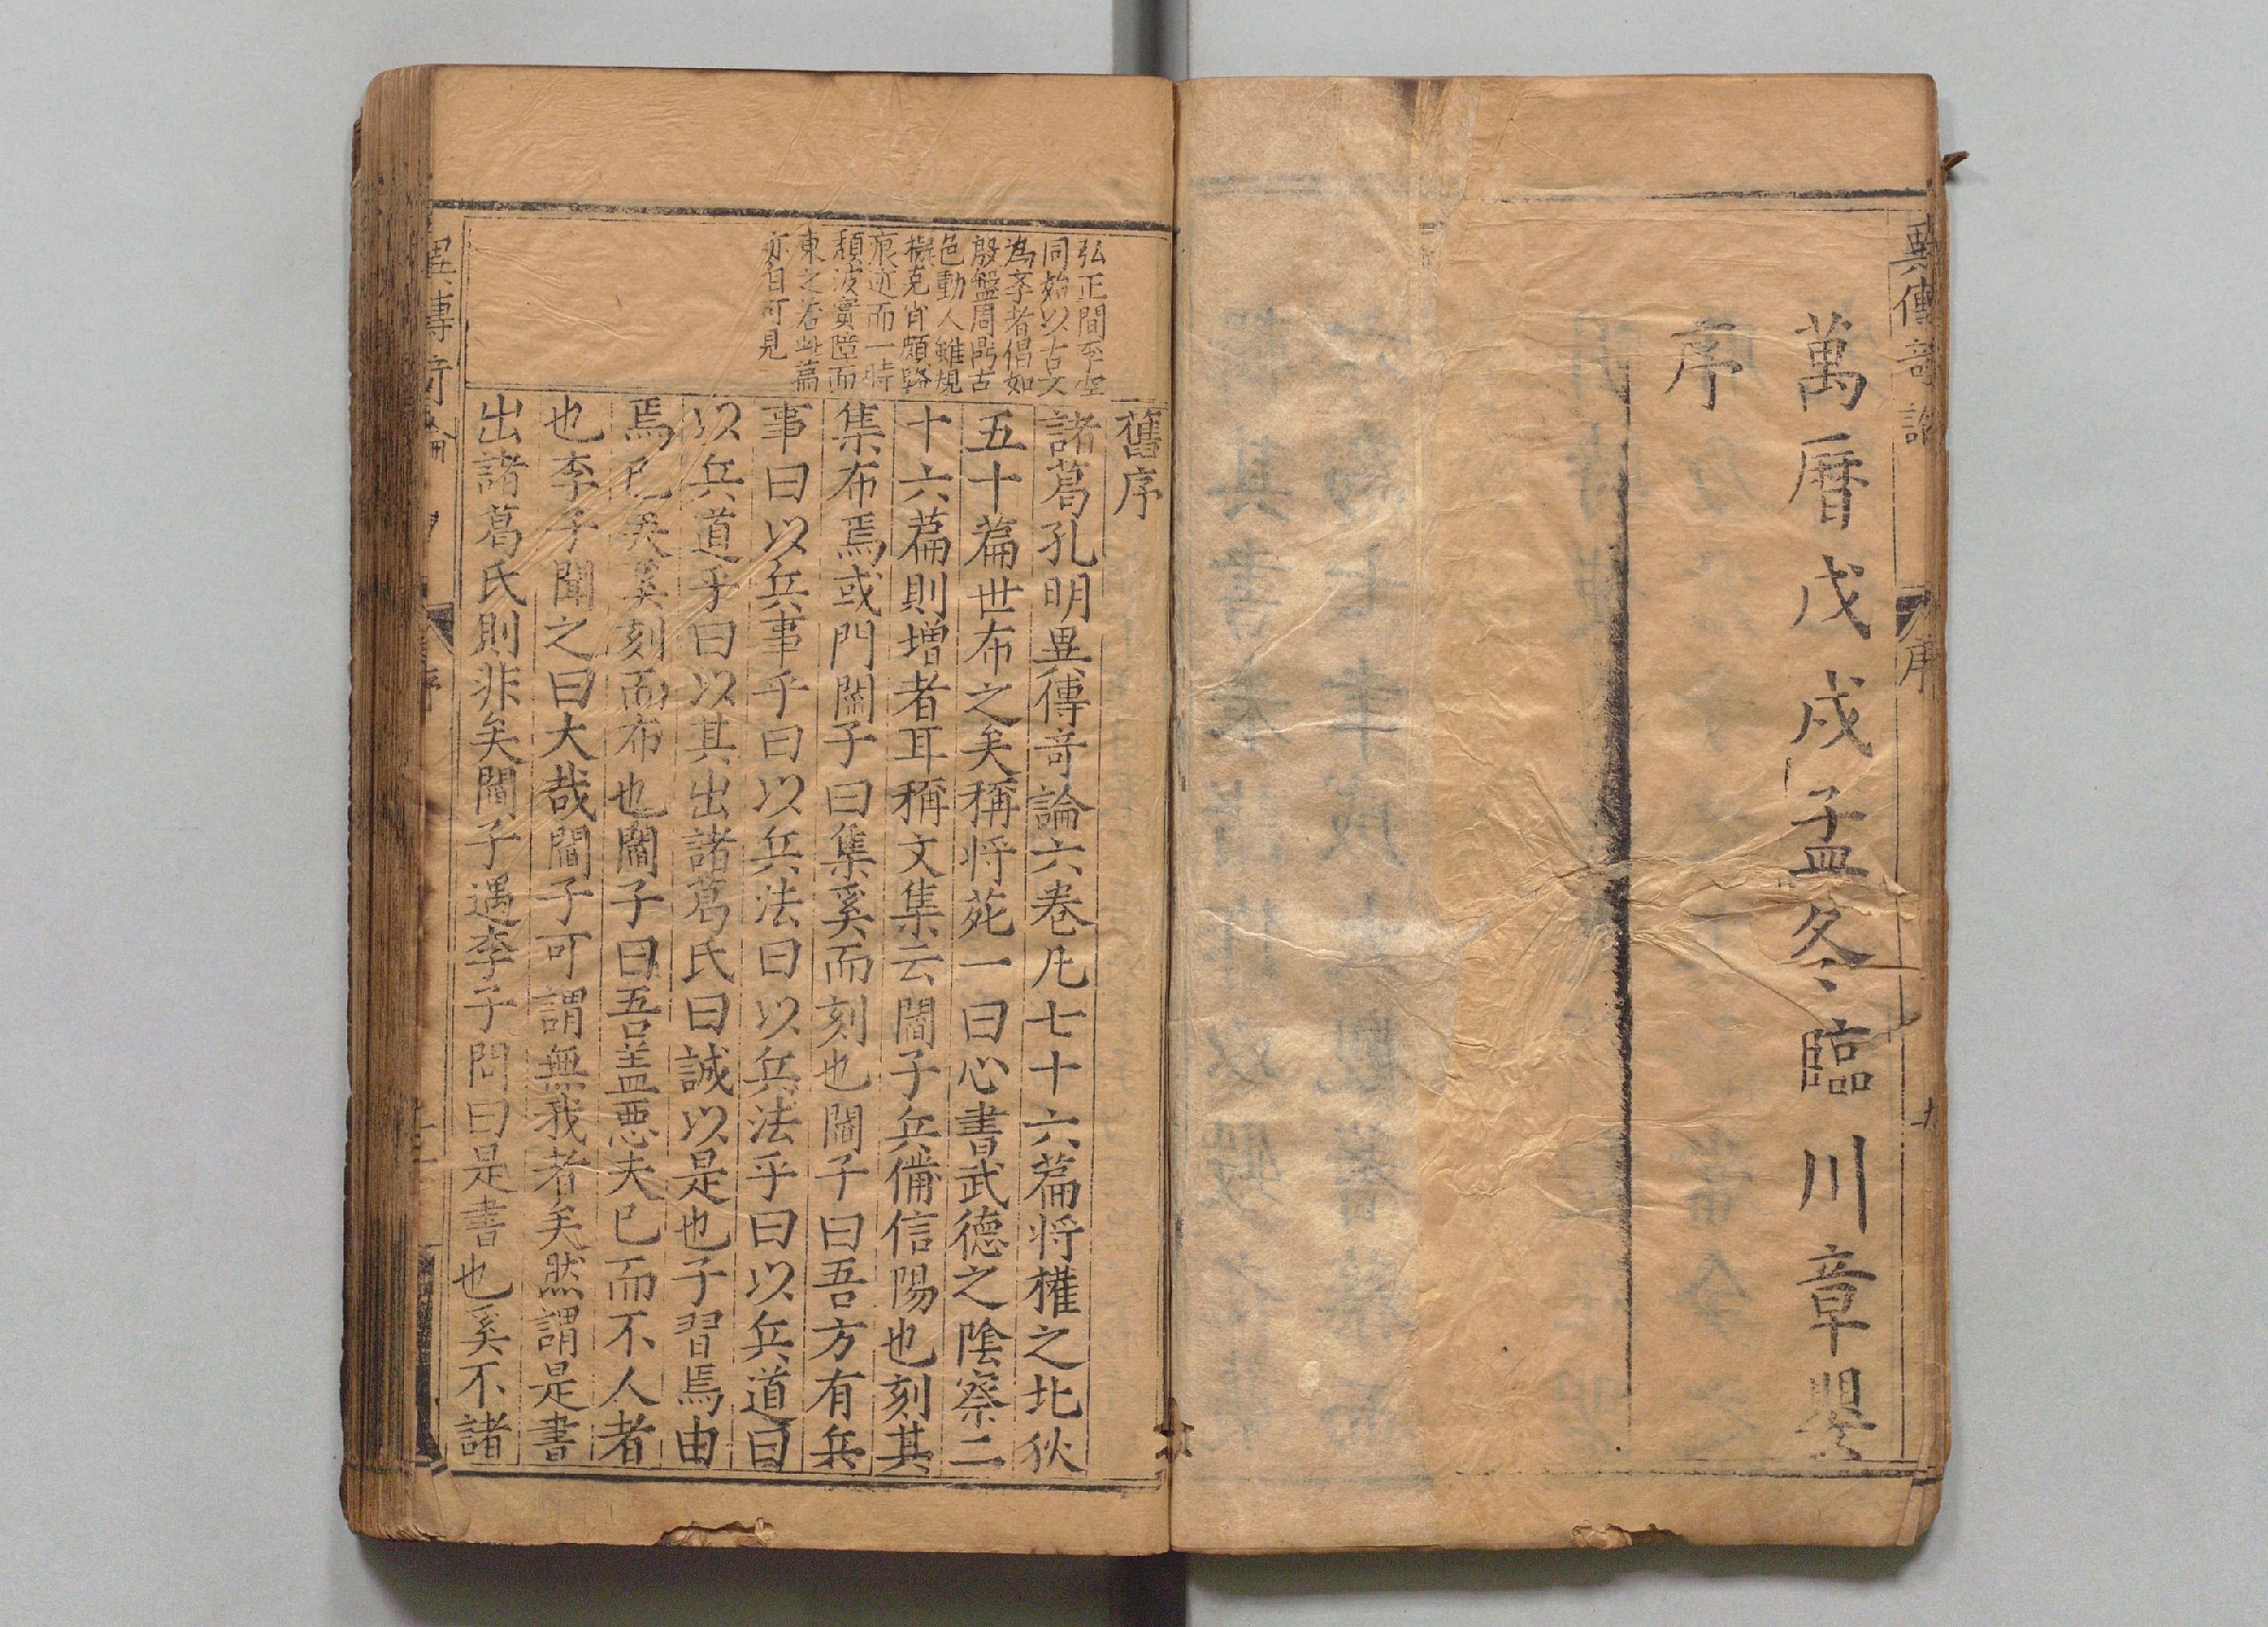 萬曆戊戌孟冬臨川章嬰
序
弘正間李空
同始以古文
為李者倡如
殷盤周鼎古
色動人雖規
擬克肖頗露
痕迹而一時
頹波實障而
東之若此篇
亦自可見
舊序
諸葛孔明異傳奇論六卷凡七十六萹將權之北狄
五十萹世布之矣稱将苑一曰心書武德之陰察二
十六萹則增者耳稱文集云閫子兵備信陽也刻其
集布焉或門閫子曰集奚而刻也閫子曰吾方有兵
事曰以兵事乎曰以兵法曰以兵法乎曰以兵道曰
以兵道乎曰以其出諸葛氏曰誠以是也子習焉由
焉已矣奚刻而布也閫子曰吾盖惡夫已而不人者
也李子聞之曰大哉閫子可謂無我者矣然謂是書
出諸葛氏則非矣閫子遇李子問曰是書也奚不諸
異傳奇論
序